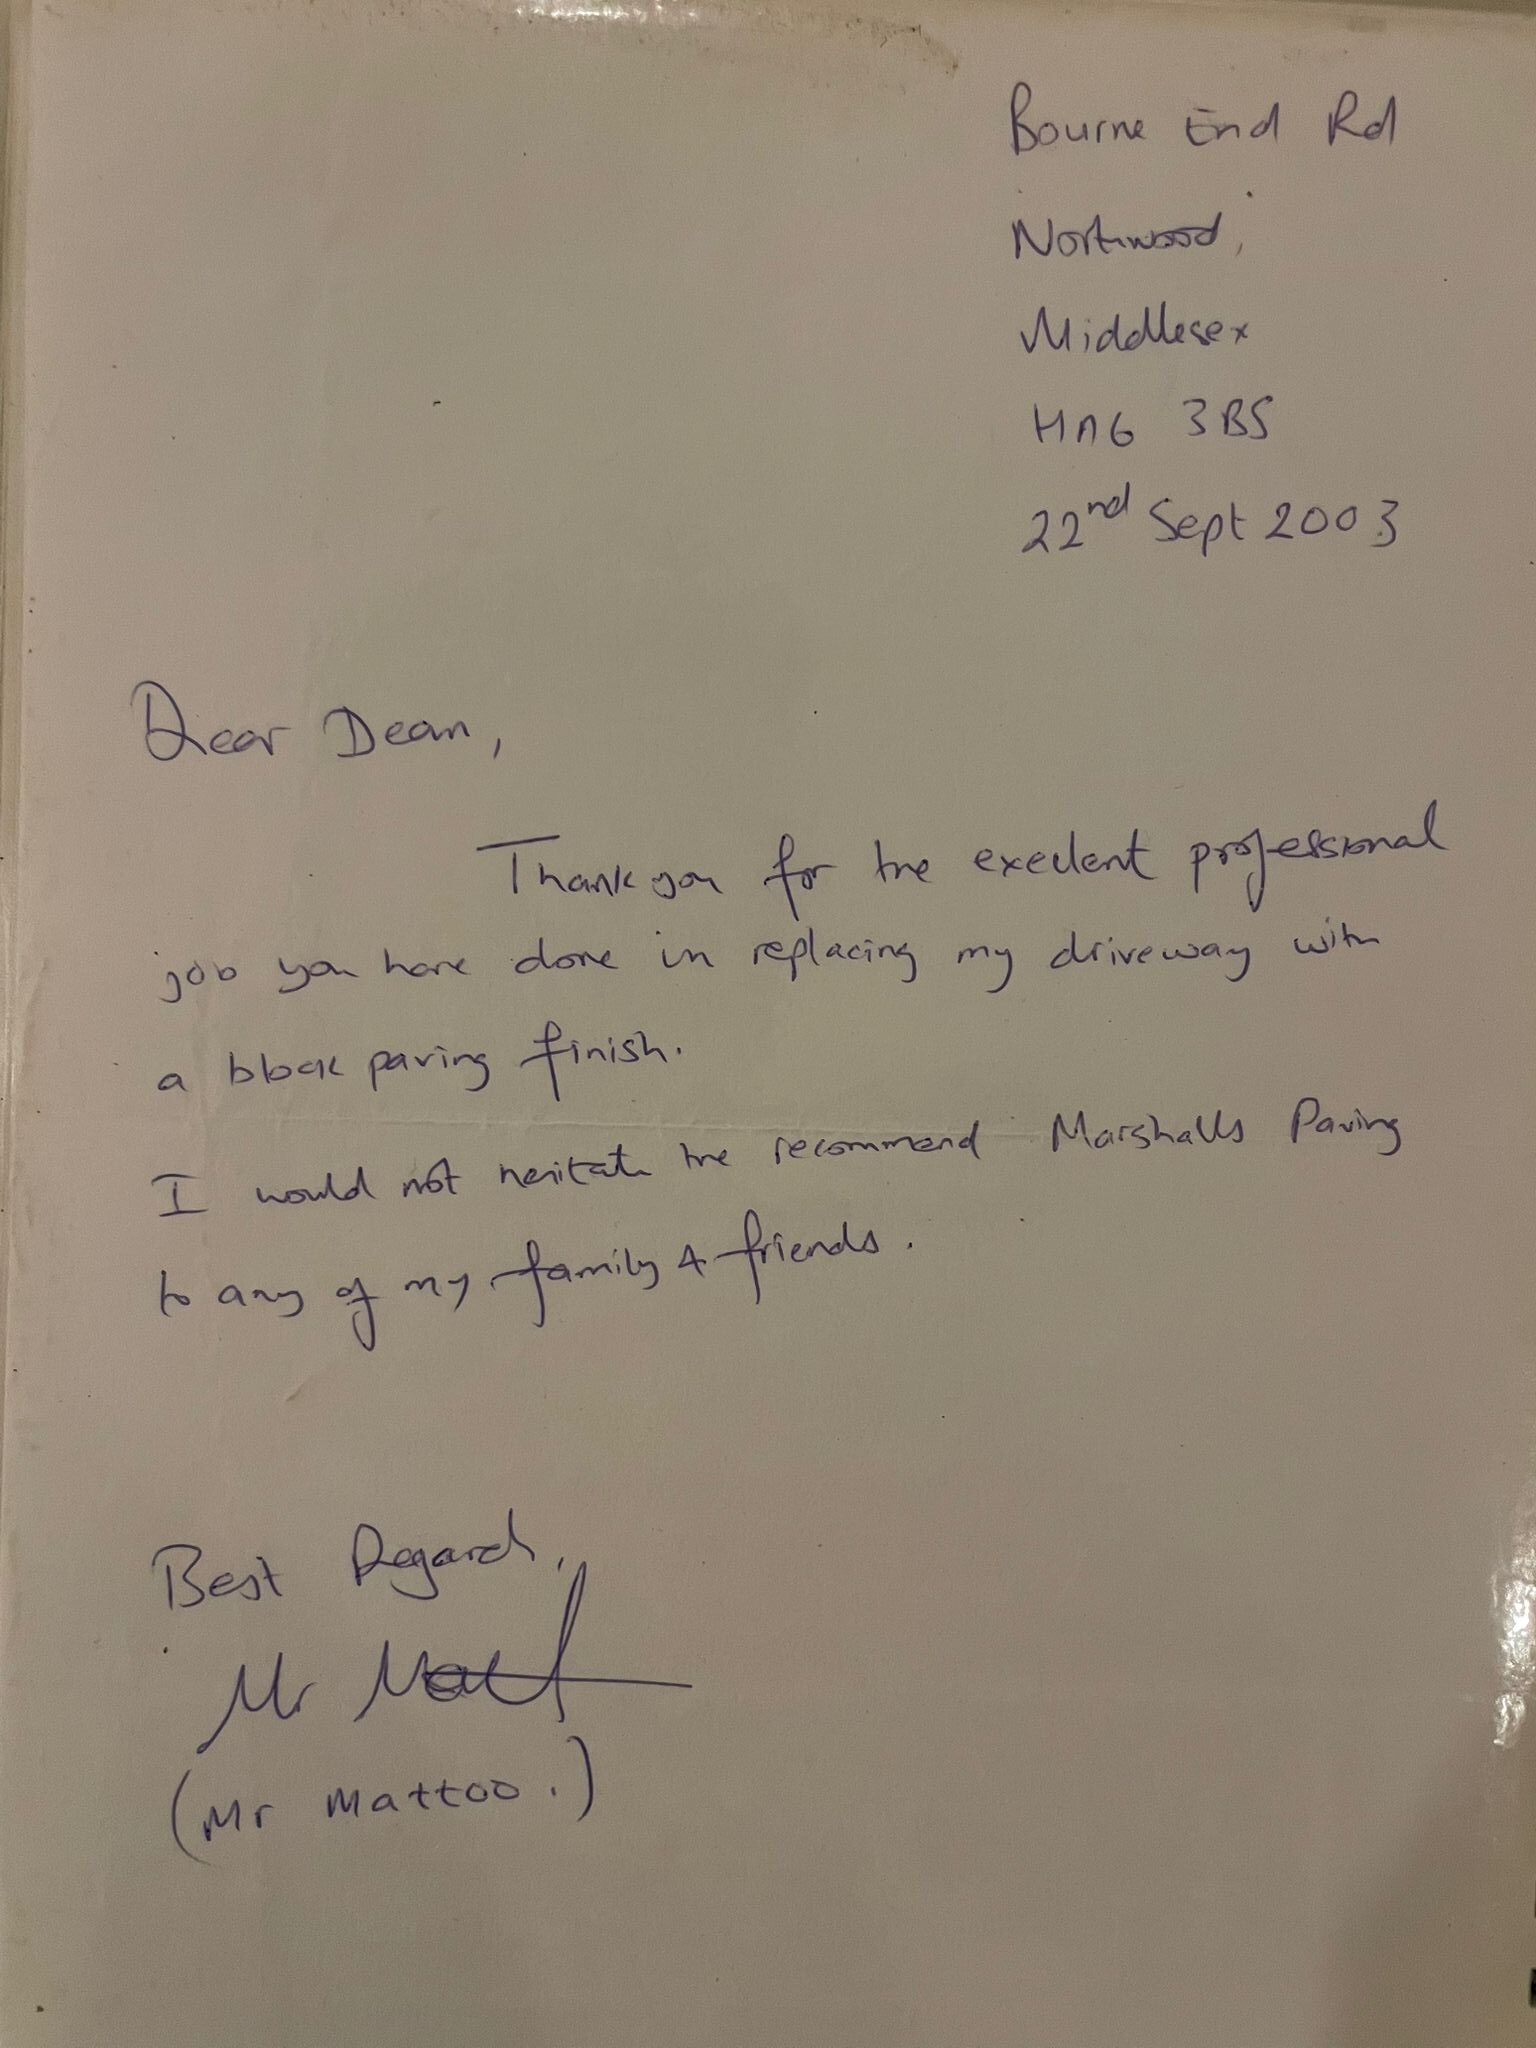 Bourne End Rd
Northwood,
Middlesex
HA6 3BS
22nd Sept 2003
Dear Dean,
Thank you for the execlent professional
job you have done in replacing my driveway with
a block paving finish.
I would not hesitate the recommend Marshalls Paving
to any of my family & friends.
Best Regard,
Mr
(Mr Mattoo.)